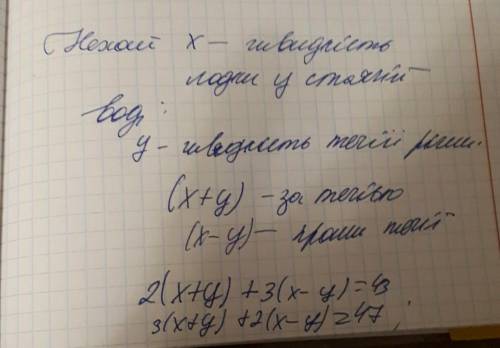 Нехай x – швидкість
лодки у стоячій
воді
y – швидкість течії річки.
(x+y) – за течією
(x–y) – проти течії
2(x+y) + 3(x–y) = 43
3(x+y) + 2(x–y) = 47 ;